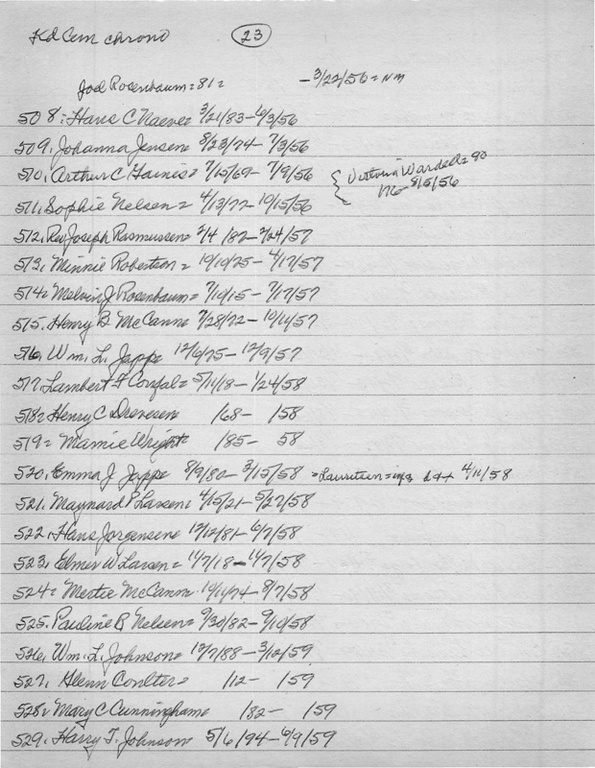 Kd Cem chrono 23
Joel Rosenbaum = 81 = - 3/22/56 = NM
508: Hans C Naeve = 3/21/83 - 6/3/56
509. Johanna Jensen 8/23/74 - 7/3/56
510. Arthur C Haines = 7/15/69 - 7/9/56 { Victoria Wardell = 90
NG - 8/5/56
511. Sophie Nelsen = 4/13/72 - 10/15/56
512. Rev Joseph Rasmussen = 2/4/82 - 2/24/57
513. Minnie Robertson = 10/10/25 - 4/17/57
514 = Melvin J Rosenbaum = 7/10/15 - 7/17/57
515. Henry B McCann = 7/28/72 - 10/11/57
516. Wm. L. Jappe 12/6/75 - 12/9/57
517. Lambert F Confal = 5/11/18 - 1/24/58
518 = Henry C Drevesen /68 - /58
519 = Mamie Wright /85 - 58
520. Emma J Jappe 8/9/80 - 3/15/58 = Lauritsen = inf 4/11/58
521. Maynard P Larsen: 4/15/21 - 5/27/58
522. Hans Jorgensen = 12/12/81 - 6/7/58
523. Elmer W Larsen = 11/7/18 - 11/7/58
524 = Mertie McCann 10/11/74 - 8/7/58
525. Pauline B Nelsen = 9/30/82 - 9/10/58
526. Wm. L. Johnson = 12/7/88 - 3/12/59
527. Glenn Coulter = /12 - /59
528 = Mary C Cunningham = /82 - /59
529. Harry T. Johnson 5/6/94 - 6/9/59